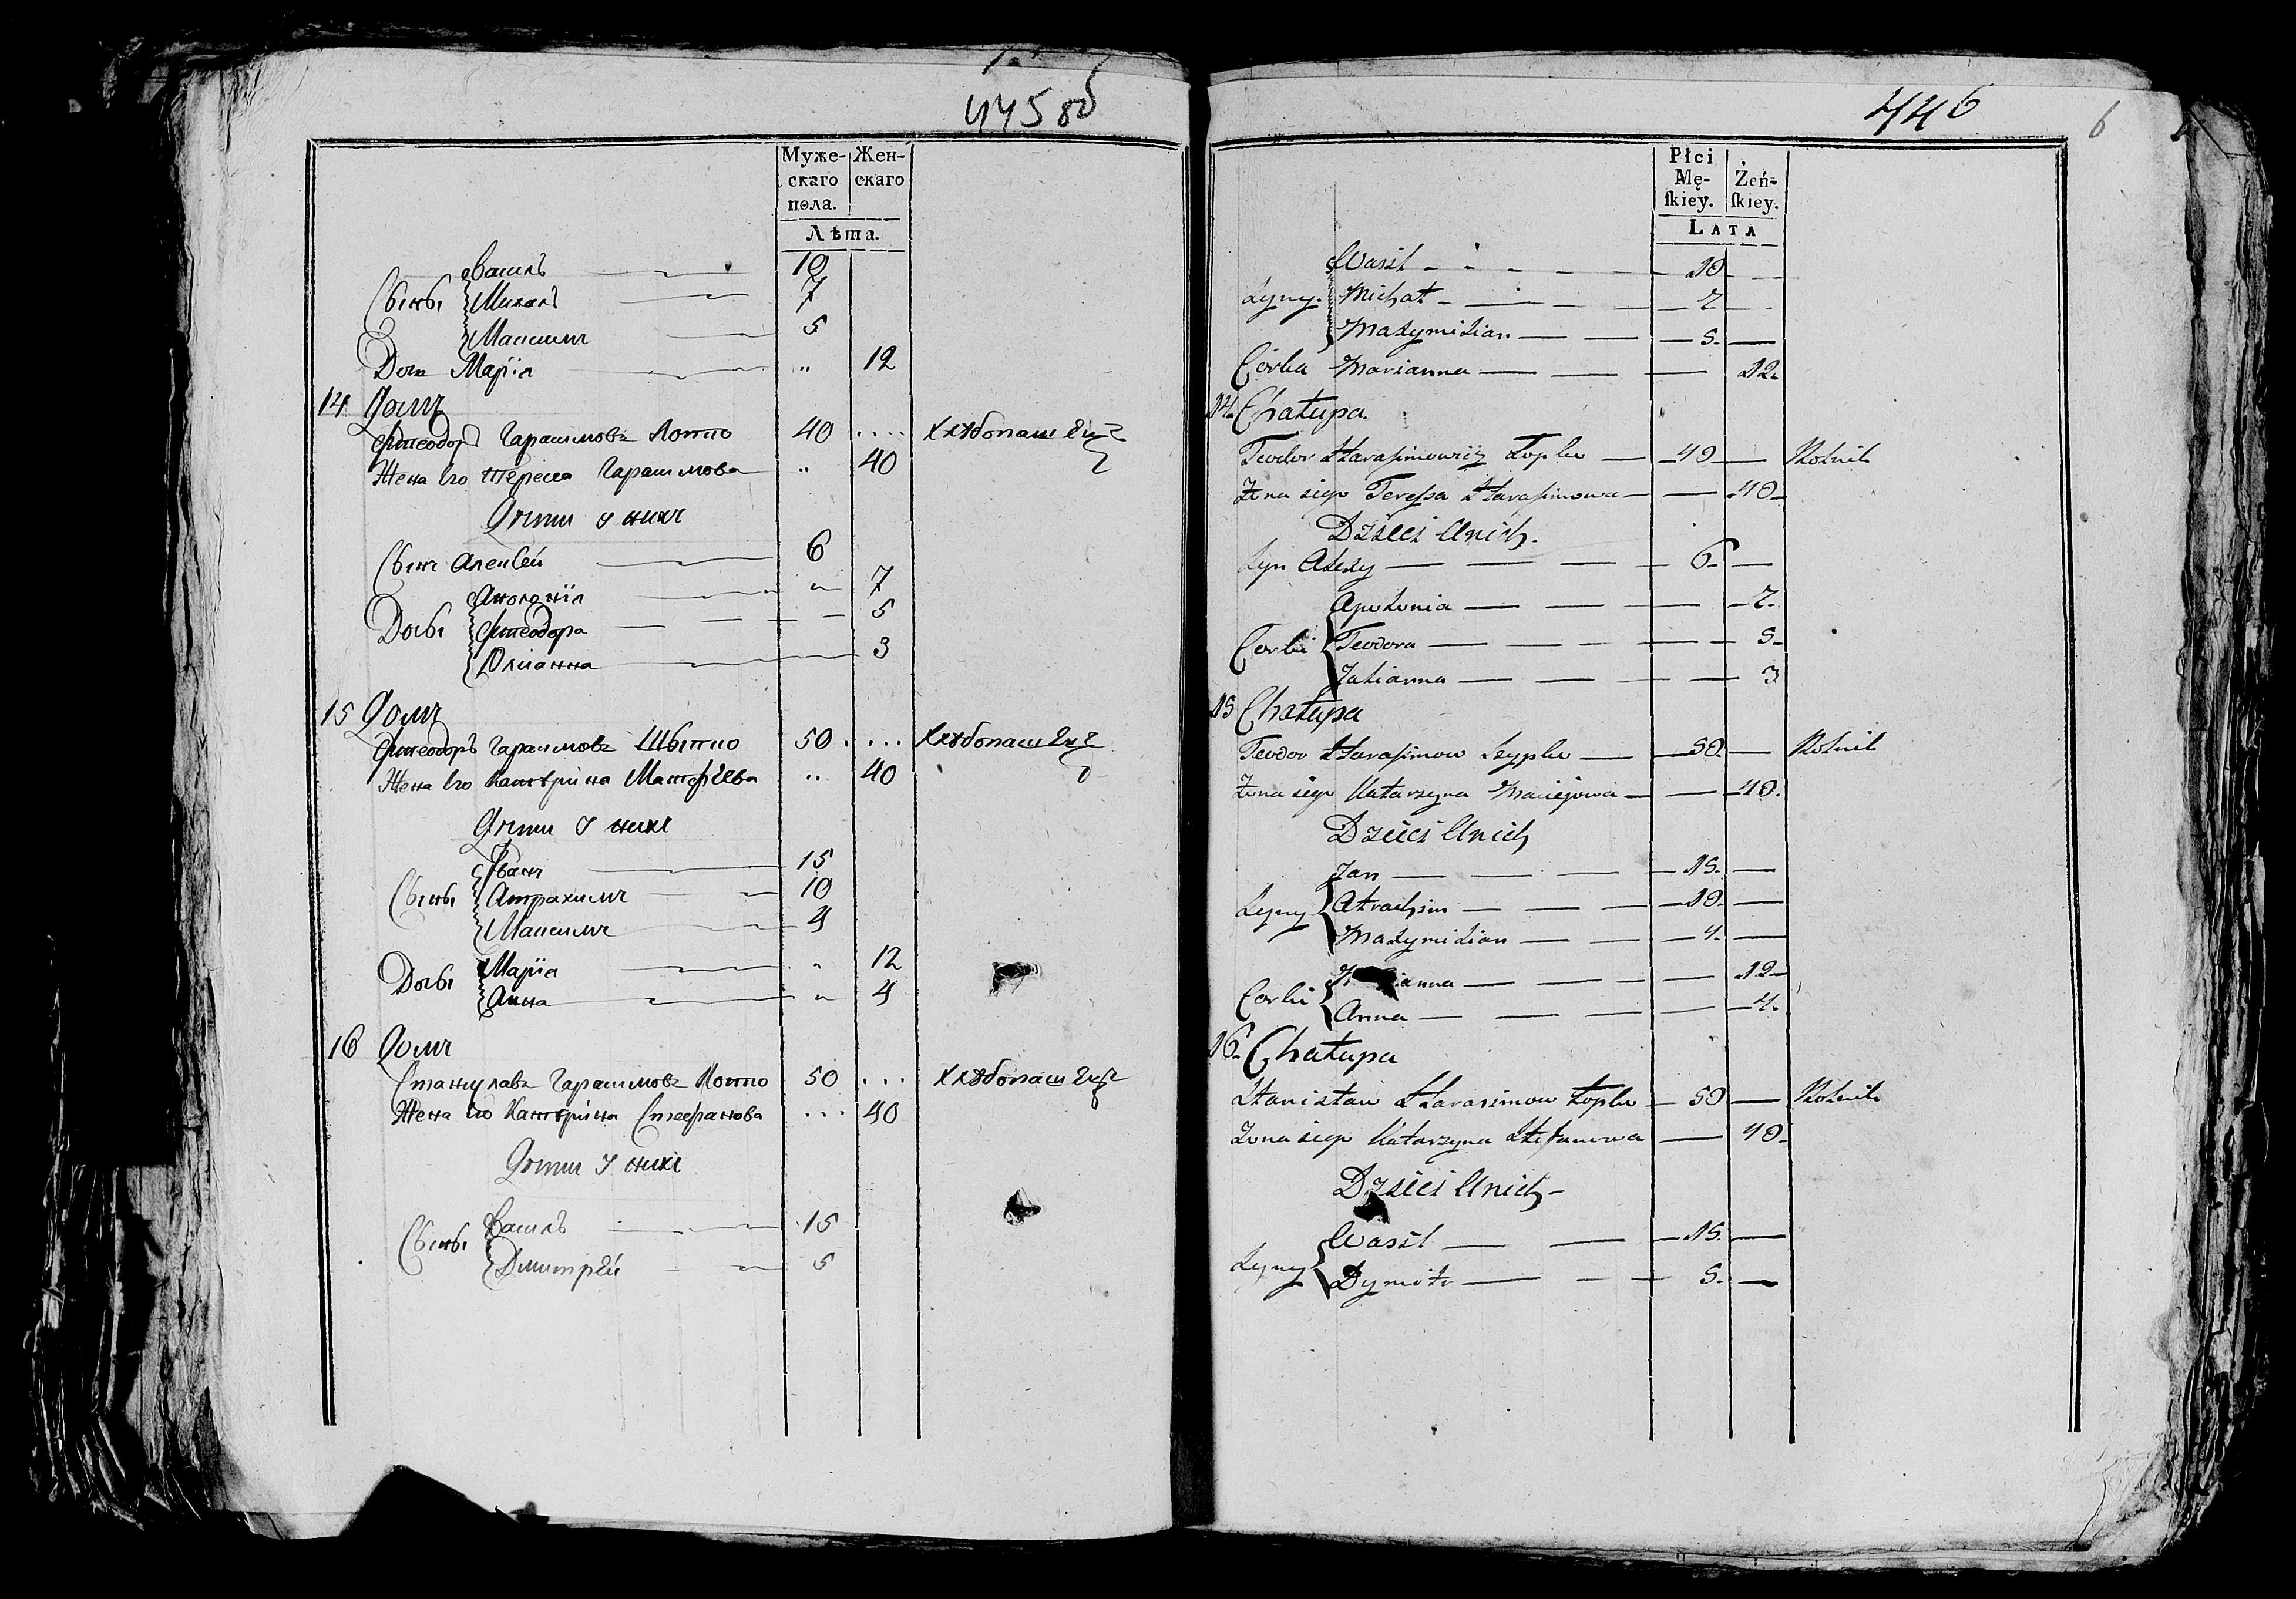 445 об
Муже- Жен-
скаго скаго
пола.
Лѣта.
Василь 10
Сыны Михалъ 7
Максимъ 5
Дочь Марія 12
14 Домъ
Фтеодоръ Гарасимовъ Копко 40 Хлѣбопашецъ
Жена Его Тереса Гарасимова 40
Дѣти У нихъ
Сынъ Алексѣй 6
Аполонія 7
Дочьки Фтеодора 5
Юліанна 3
15 Домъ
Фтеодоръ Гарасимовъ Шыпко 50 Хлѣбопашецъ
Жена Его Катѣрина Матфѣева 40
Дѣти У нихъ
Иванъ 15
Сыны Атрахимъ 10
Максимъ 4
Дочьки Марія 12
Анна 4
16 Домъ
Станиславъ Гарасимовъ Копко 50 Хлѣбопашецъ
Жена Его Катѣрина Стефанова 40
Дѣти У нихъ
Сыны Василь 15
Дмитрѣй 5
446
6
Płci
Mę- Żeń-
ſkiey. ſkiey.
LATA
Wasil 10
Syny Michał 7
Maxymilian 5
Corka Marianna 12
14 Chałupa
Teodor Harasimowicz Łopko 40 Rolnik
Żona iego Teressa Harasimowa 40
Dzieci Unich
Syn Alexy 6
Apolonia 7
Corki Teodora 5
Julianna 3
15 Chałupa
Teodor Harasimow Szypko 50 Rolnik
Żona iego Katarzyna Maciejowa 40
Dzieci Unich
Jan 15
Syny Atrachim 10
Maxymilian 4
Corki M ianna 12
Anna 4
16 Chałupa
Stanisław Harasimow Łopko 50 Rolnik
Żona iego Katarzyna Stefanowa 40
Dzieci Unich
Wasil 15
Syny Dymitr 5